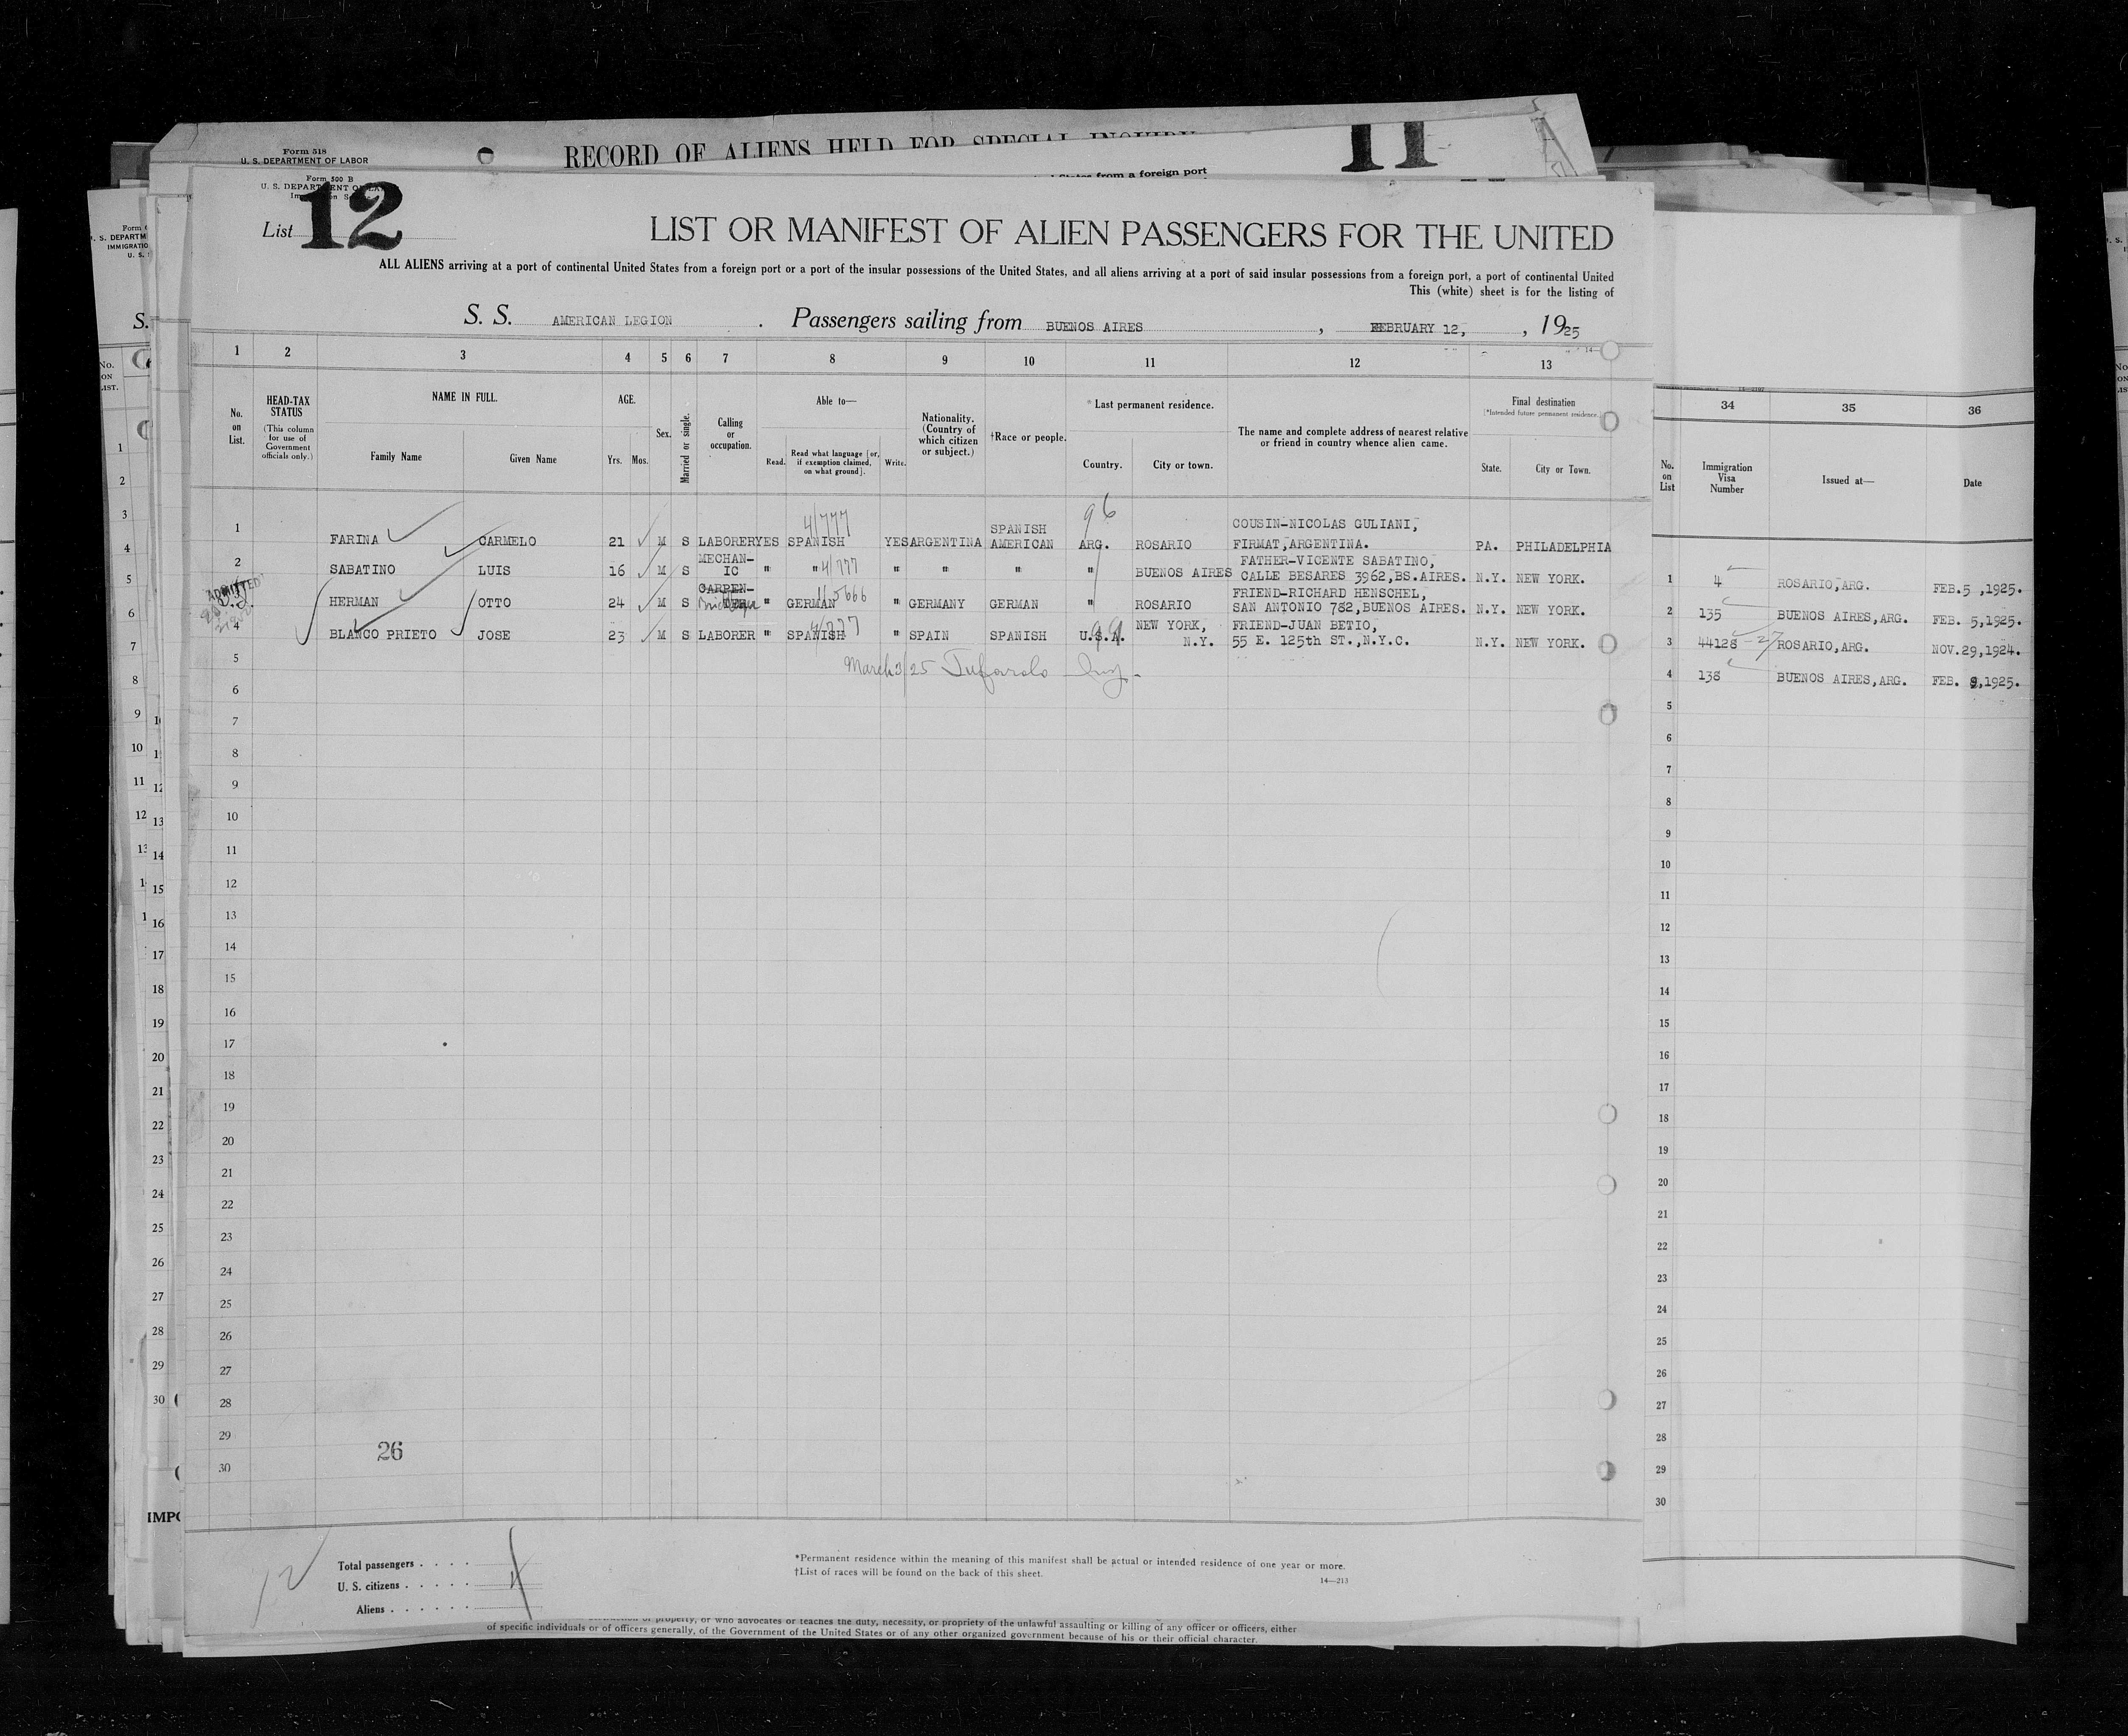 Form 518
U. S. DEPARTMENT OF LABOR
RECORD OF ALIENS HELD FOR SPECIAL INQUIRY
11
from a foreign port
Form 500 B
U. S. DEPARTMENT OF LABOR
List 12
LIST OR MANIFEST OF ALIEN PASSENGERS FOR THE UNITED
ALL ALIENS arriving at a port of continental United States from a foreign port or a port of the insular possessions of the United States, and all aliens arriving at a port of said insular possessions from a foreign port, a port of continental United
This (white) sheet is for the listing of
S. S. AMERICAN LEGION . Passengers sailing from BUENOS AIRES , FEBRUARY 12, , 1925
1 2 3 4 5 6 7 8 9 10 11 12 13
No. on List.
HEAD-TAX STATUS (This column for use of Government officials only.)
NAME IN FULL.
Family Name Given Name
AGE.
Yrs. Mos.
Sex.
Married or single.
Calling or occupation.
Able to—
Read. Read what language [or, if exemption claimed, on what ground]. Write.
Nationality. (Country of which citizen or subject.)
†Race or people.
*Last permanent residence.
Country. City or town.
The name and complete address of nearest relative or friend in country whence alien came.
Final destination
(*Intended future permanent residence.)
State. City or Town.
34 35 36
No. on List
Immigration Visa Number
Issued at—
Date
4/777 96
1 FARINA CARMELO 21 M S LABORER YES SPANISH YES ARGENTINA SPANISH AMERICAN ARG. ROSARIO COUSIN-NICOLAS GULIANI, FIRMAT,ARGENTINA. PA. PHILADELPHIA
2 SABATINO LUIS 16 M S MECHAN-IC " " 4/777 " " " " BUENOS AIRES FATHER-VICENTE SABATINO, CALLE BESARES 3962,BS.AIRES. N.Y. NEW YORK.
ADMITTED
HERMAN OTTO 24 M S CARPEN-TER " GERMAN " GERMANY GERMAN " ROSARIO FRIEND-RICHARD HENSCHEL, SAN ANTONIO 782,BUENOS AIRES. N.Y. NEW YORK.
4 BLANCO PRIETO JOSE 23 M S LABORER " SPANISH 4/777 " SPAIN SPANISH U.S.A. 99 NEW YORK, N.Y. FRIEND-JUAN BETIO, 55 E. 125th ST.,N.Y.C. N.Y. NEW YORK.
March 3/25
1 4 ROSARIO,ARG. FEB.5 ,1925.
2 135 BUENOS AIRES,ARG. FEB. 5,1925.
3 44128 -27 ROSARIO,ARG. NOV.29,1924.
4 138 BUENOS AIRES,ARG. FEB. 9,1925.
5
6
7
8
9
10
11
12
13
14
15
16
17
18
19
20
21
22
23
24
25
26
27
28
29
30
26
12
Total passengers . . . .
U. S. citizens . . . . . .
Aliens . . . . . .
4
*Permanent residence within the meaning of this manifest shall be actual or intended residence of one year or more.
†List of races will be found on the back of this sheet.
14—213
of property, or who advocates or teaches the duty, necessity, or propriety of the unlawful assaulting or killing of any officer or officers, either
of specific individuals or of officers generally, of the Government of the United States or of any other organized government because of his or their official character.